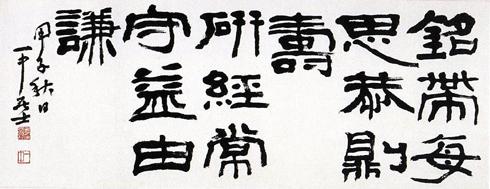 銘帶每
思恭鼎
壽
研經常
守益由
謙
甲子秋日
居士